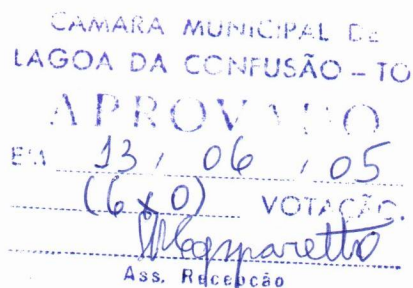 CAMARA MUNICIPAL DE
LAGOA DA CONFUSÃO – TO
APROVADO
EM 13 / 06 / 05
(6 x 0) VOTAÇÃO.
Ass. Recepcão